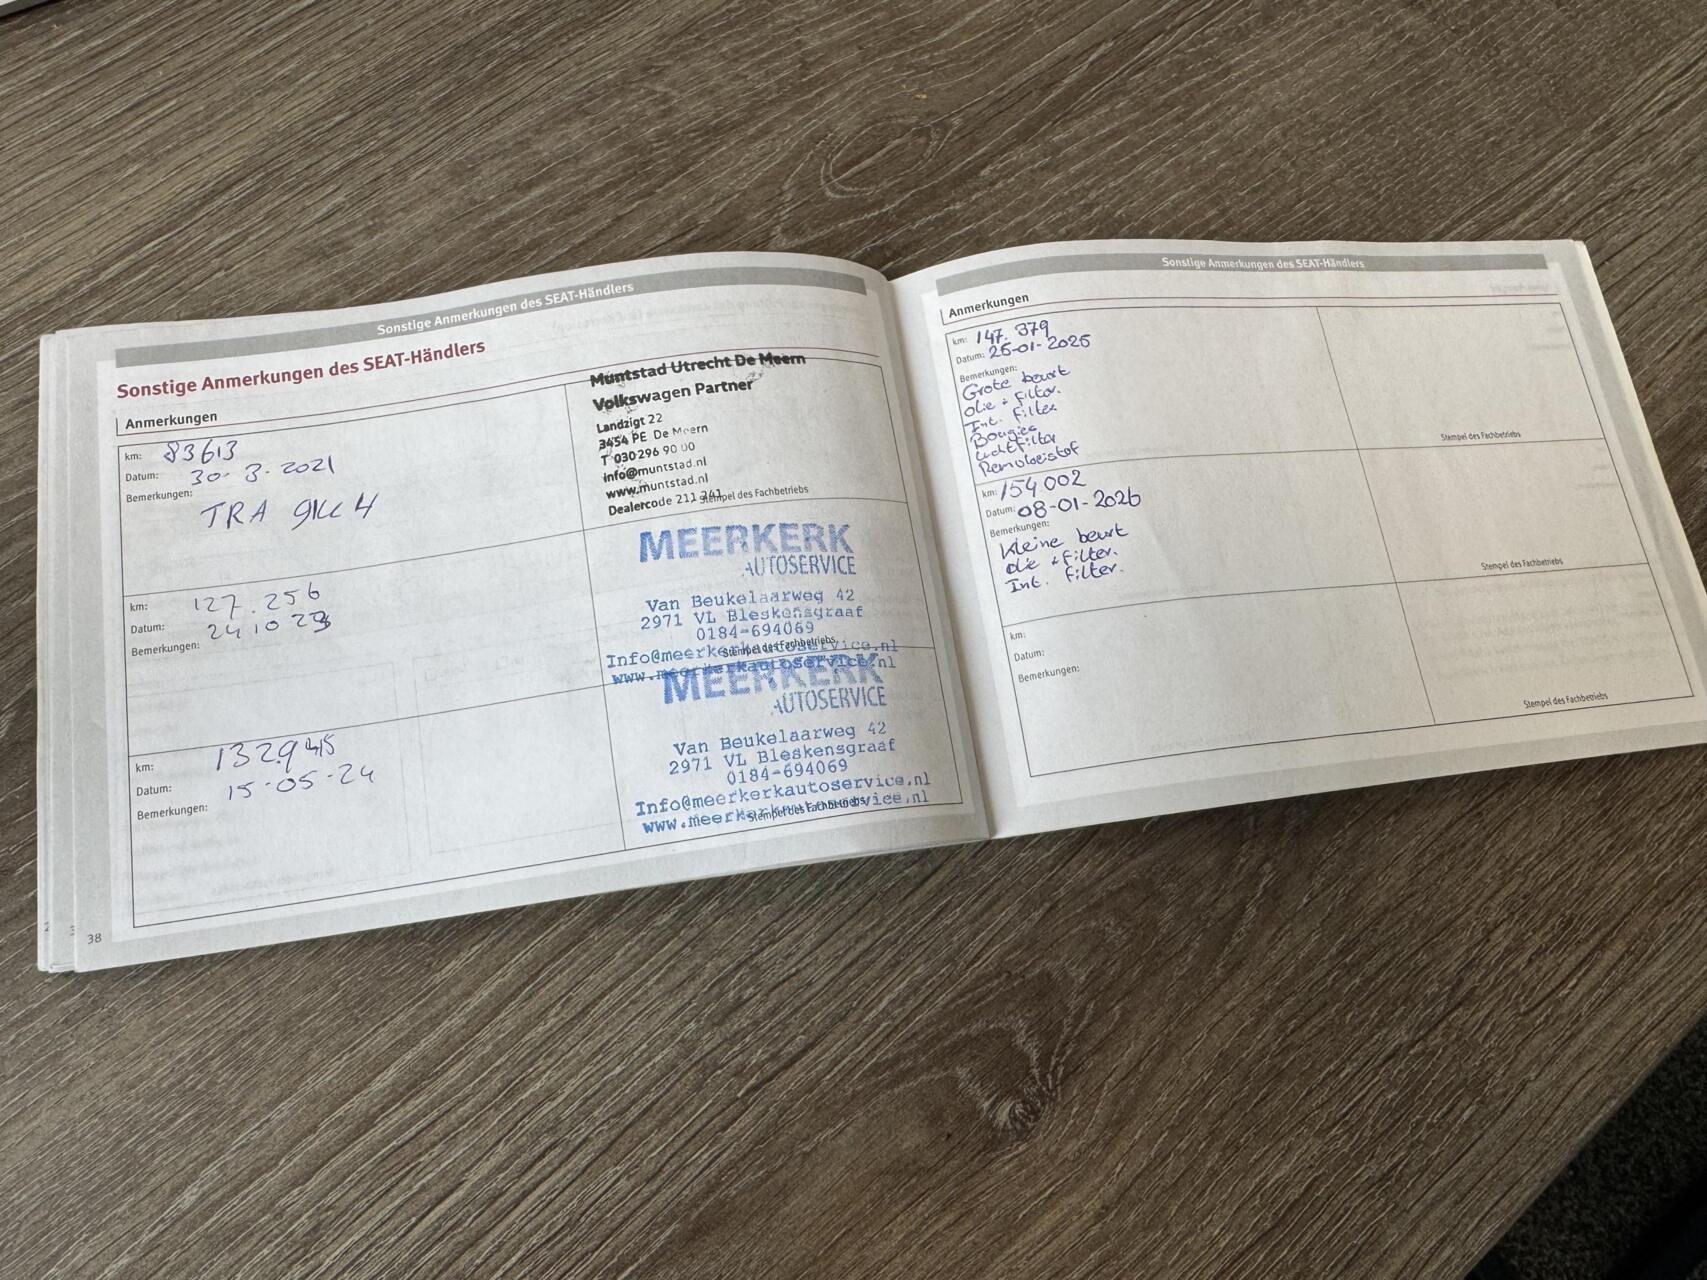 Sonstige Anmerkungen des SEAT-Händlers
Sonstige Anmerkungen des SEAT-Händlers
Anmerkungen
km: 83613
Datum: 30-3-2021
Bemerkungen:
TRA
Muntstad Utrecht De Meern
Volkswagen Partner
Landzigt 22
3454 PE De Meern
T 030 296 90 00
info@muntstad.nl
www.muntstad.nl
Dealercode 211 241
Stempel des Fachbetriebs
km: 127.256
Datum: 24 10 23
Bemerkungen:
MEERKERK
AUTOSERVICE
Van Beukelaarweg 42
2971 VL Bleskensgraaf
0184-694069
Info@meerkerkautoservice.nl
www.meerkerkautoservice.nl
Stempel des Fachbetriebs
km: 132945
Datum: 15-05-24
Bemerkungen:
MEERKERK
AUTOSERVICE
Van Beukelaarweg 42
2971 VL Bleskensgraaf
0184-694069
Info@meerkerkautoservice.nl
www.meerkerkautoservice.nl
Stempel des Fachbetriebs
38
Sonstige Anmerkungen des SEAT-Händlers
Anmerkungen
km: 147.379
Datum: 25-01-2025
Bemerkungen:
Grote beurt
Olie + filter.
Int. filter
Bougies
Luchtfilter
Remvloeistof
Stempel des Fachbetriebs
km: 154002
Datum: 08-01-2026
Bemerkungen:
Kleine beurt
olie + filter.
Int. filter.
Stempel des Fachbetriebs
km:
Datum:
Bemerkungen:
Stempel des Fachbetriebs